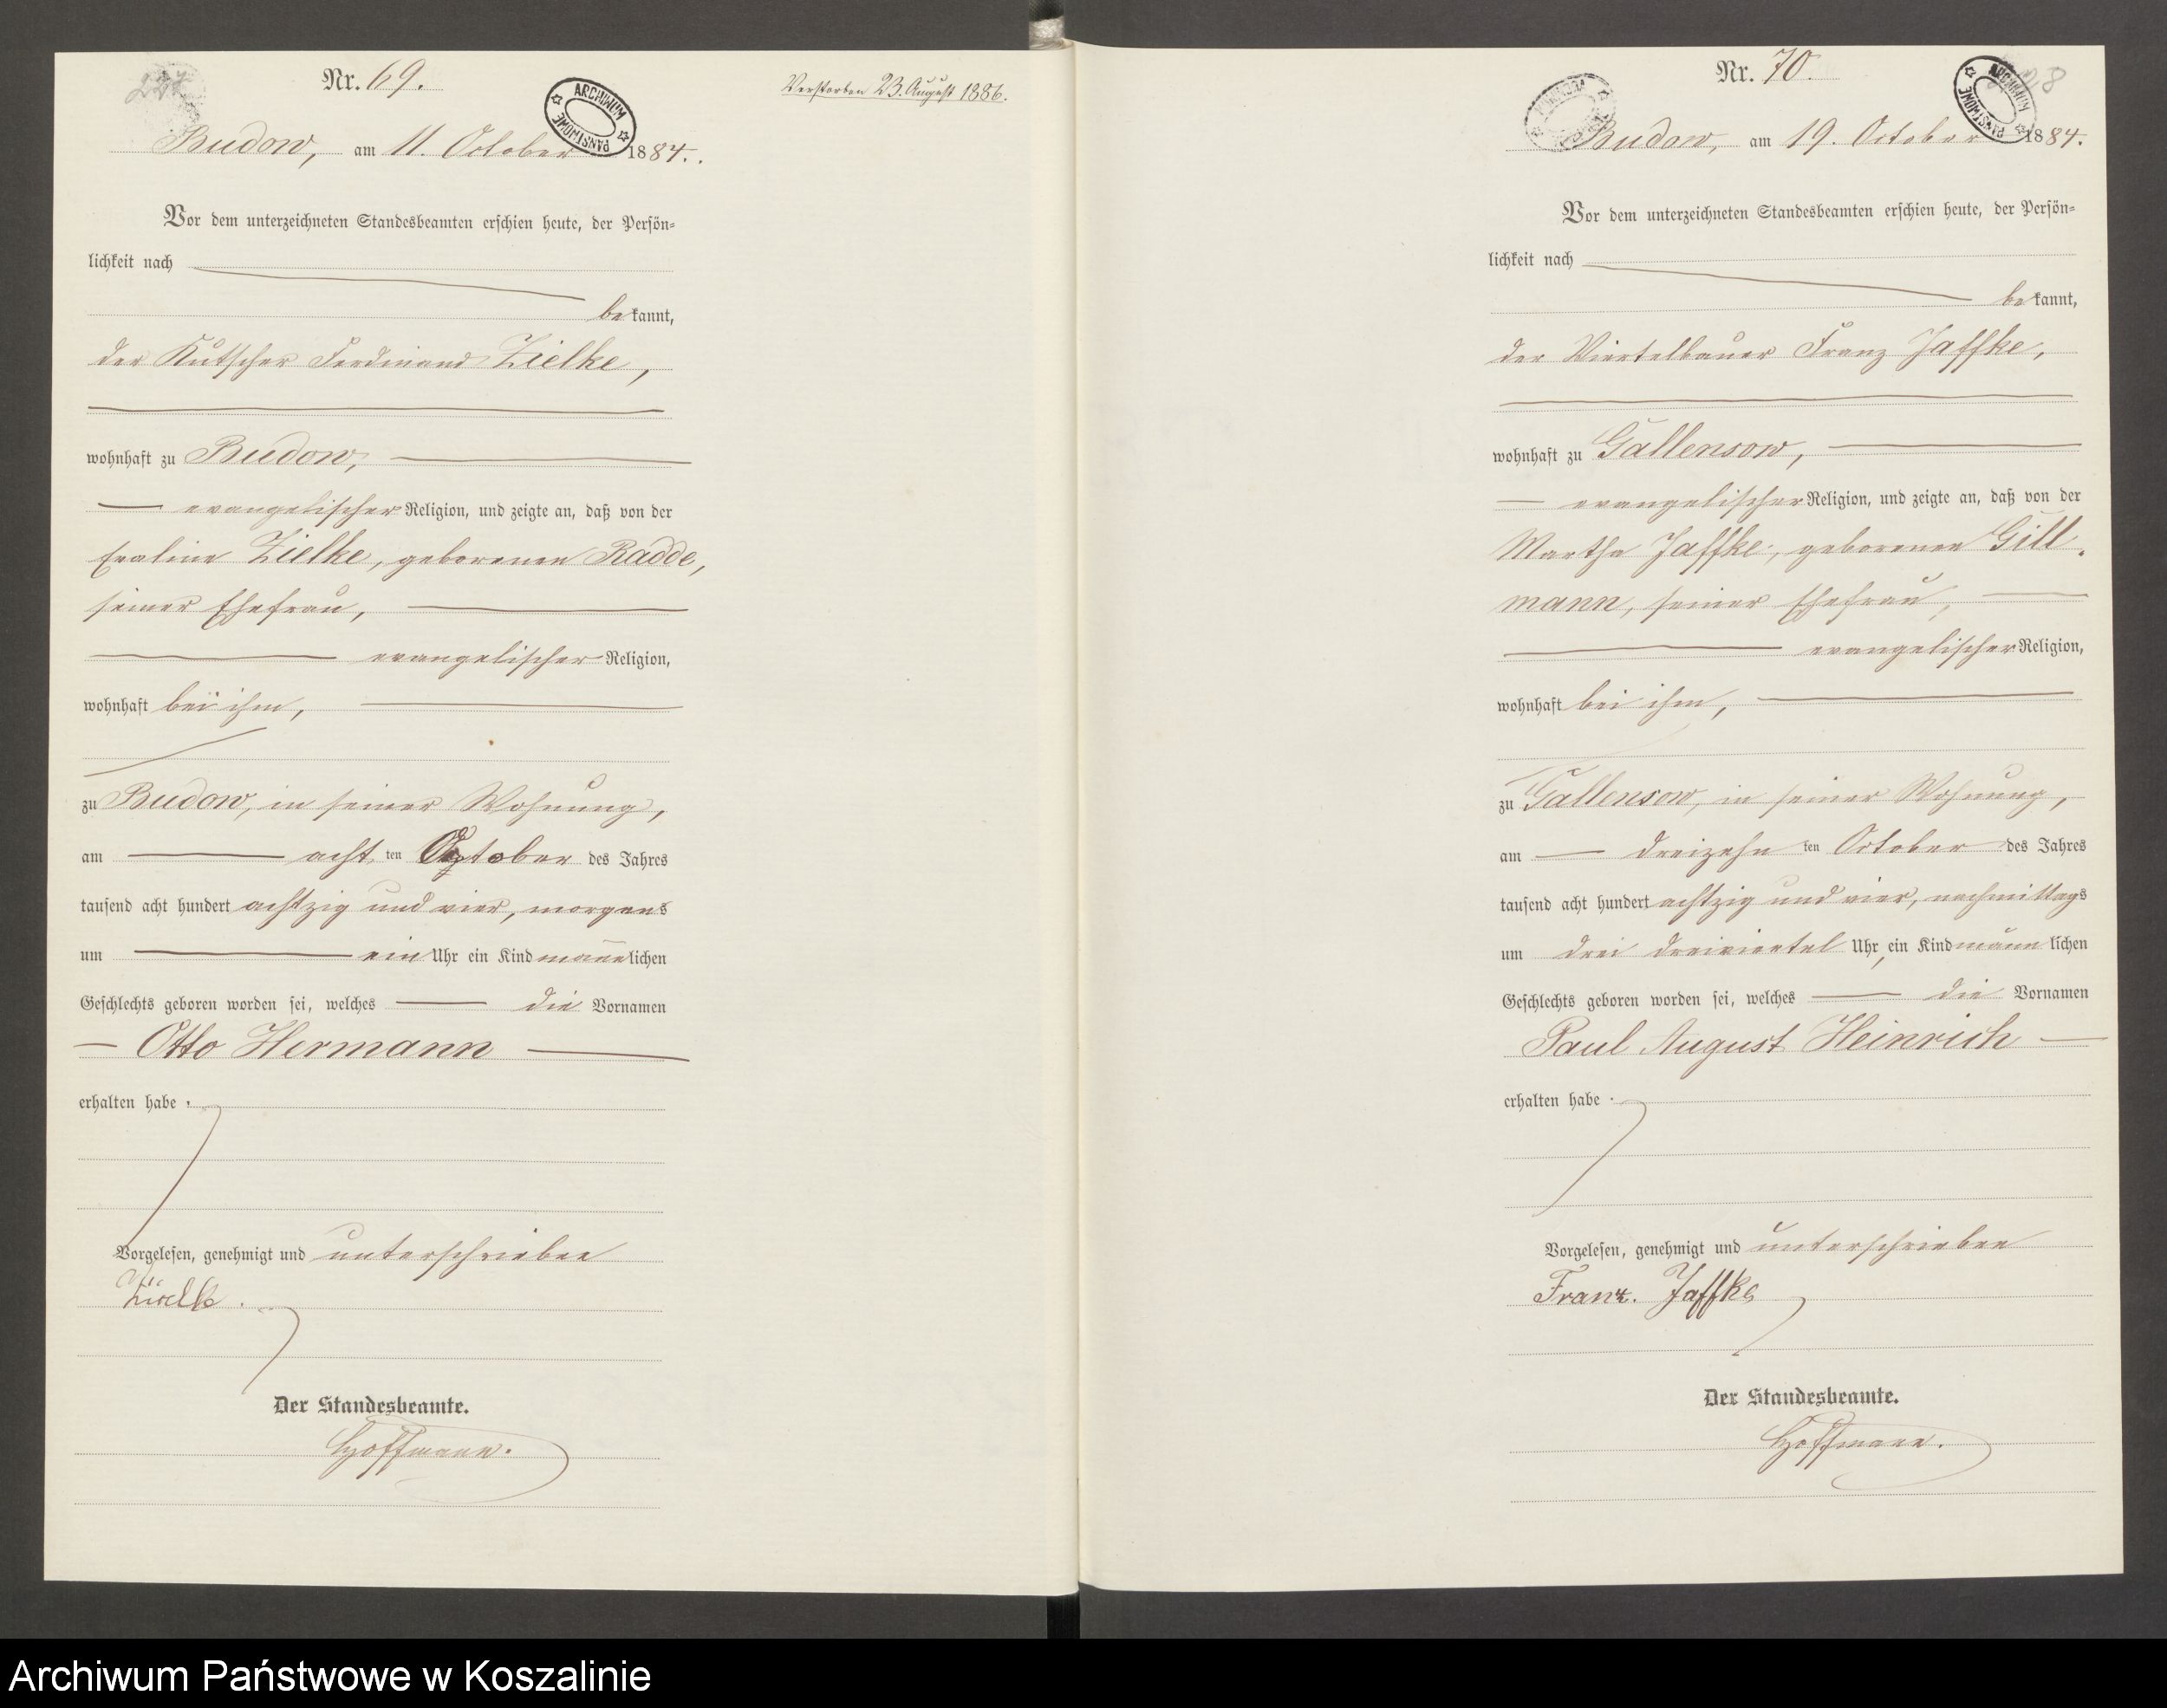 227
Nr. 69.
ARCHIWUM PAŃSTWOWE
Verstorben 23. August 1886.
Budow, am 11. October 1884.
Vor dem unterzeichneten Standesbeamten erschien heute, der Persön-
lichkeit nach
bekannt,
der Kutscher Ferdinand Zielke,
wohnhaft zu Budow,
evangelischer Religion, und zeigte an, daß von der
Zielke, geborenen Radde,
seiner Ehefrau,
evangelischer Religion,
wohnhaft bei ihm,
zu Budow, in seiner Wohnung,
am acht ten October des Jahres
tausend acht hundert achtzig und vier, morgens
um ein Uhr ein Kind männlichen
Geschlechts geboren worden sei, welches die Vornamen
Otto Hermann
erhalten habe.
Vorgelesen, genehmigt und unterschrieben
Zielke.
Der Standesbeamte.
Hoffmann.
Nr. 70.
ARCHIWUM PAŃSTWOWE
Budow, am 19. October 1884.
Vor dem unterzeichneten Standesbeamten erschien heute, der Persön-
lichkeit nach
bekannt,
der Viertelbauer Franz Jaffke,
wohnhaft zu Gallensow,
evangelischer Religion, und zeigte an, daß von der
Martha Jaffke, geborenen Gill-
mann, seiner Ehefrau,
evangelischer Religion,
wohnhaft bei ihm,
zu Gallensow, in seiner Wohnung,
am dreizehn ten October des Jahres
tausend acht hundert achtzig und vier, nachmittags
um drei dreiviertel Uhr, ein Kind männlichen
Geschlechts geboren worden sei, welches die Vornamen
Paul August Heinrich
erhalten habe.
Vorgelesen, genehmigt und unterschrieben
Franz. Jaffke
Der Standesbeamte.
Hoffmann.
Archiwum Państwowe w Koszalinie